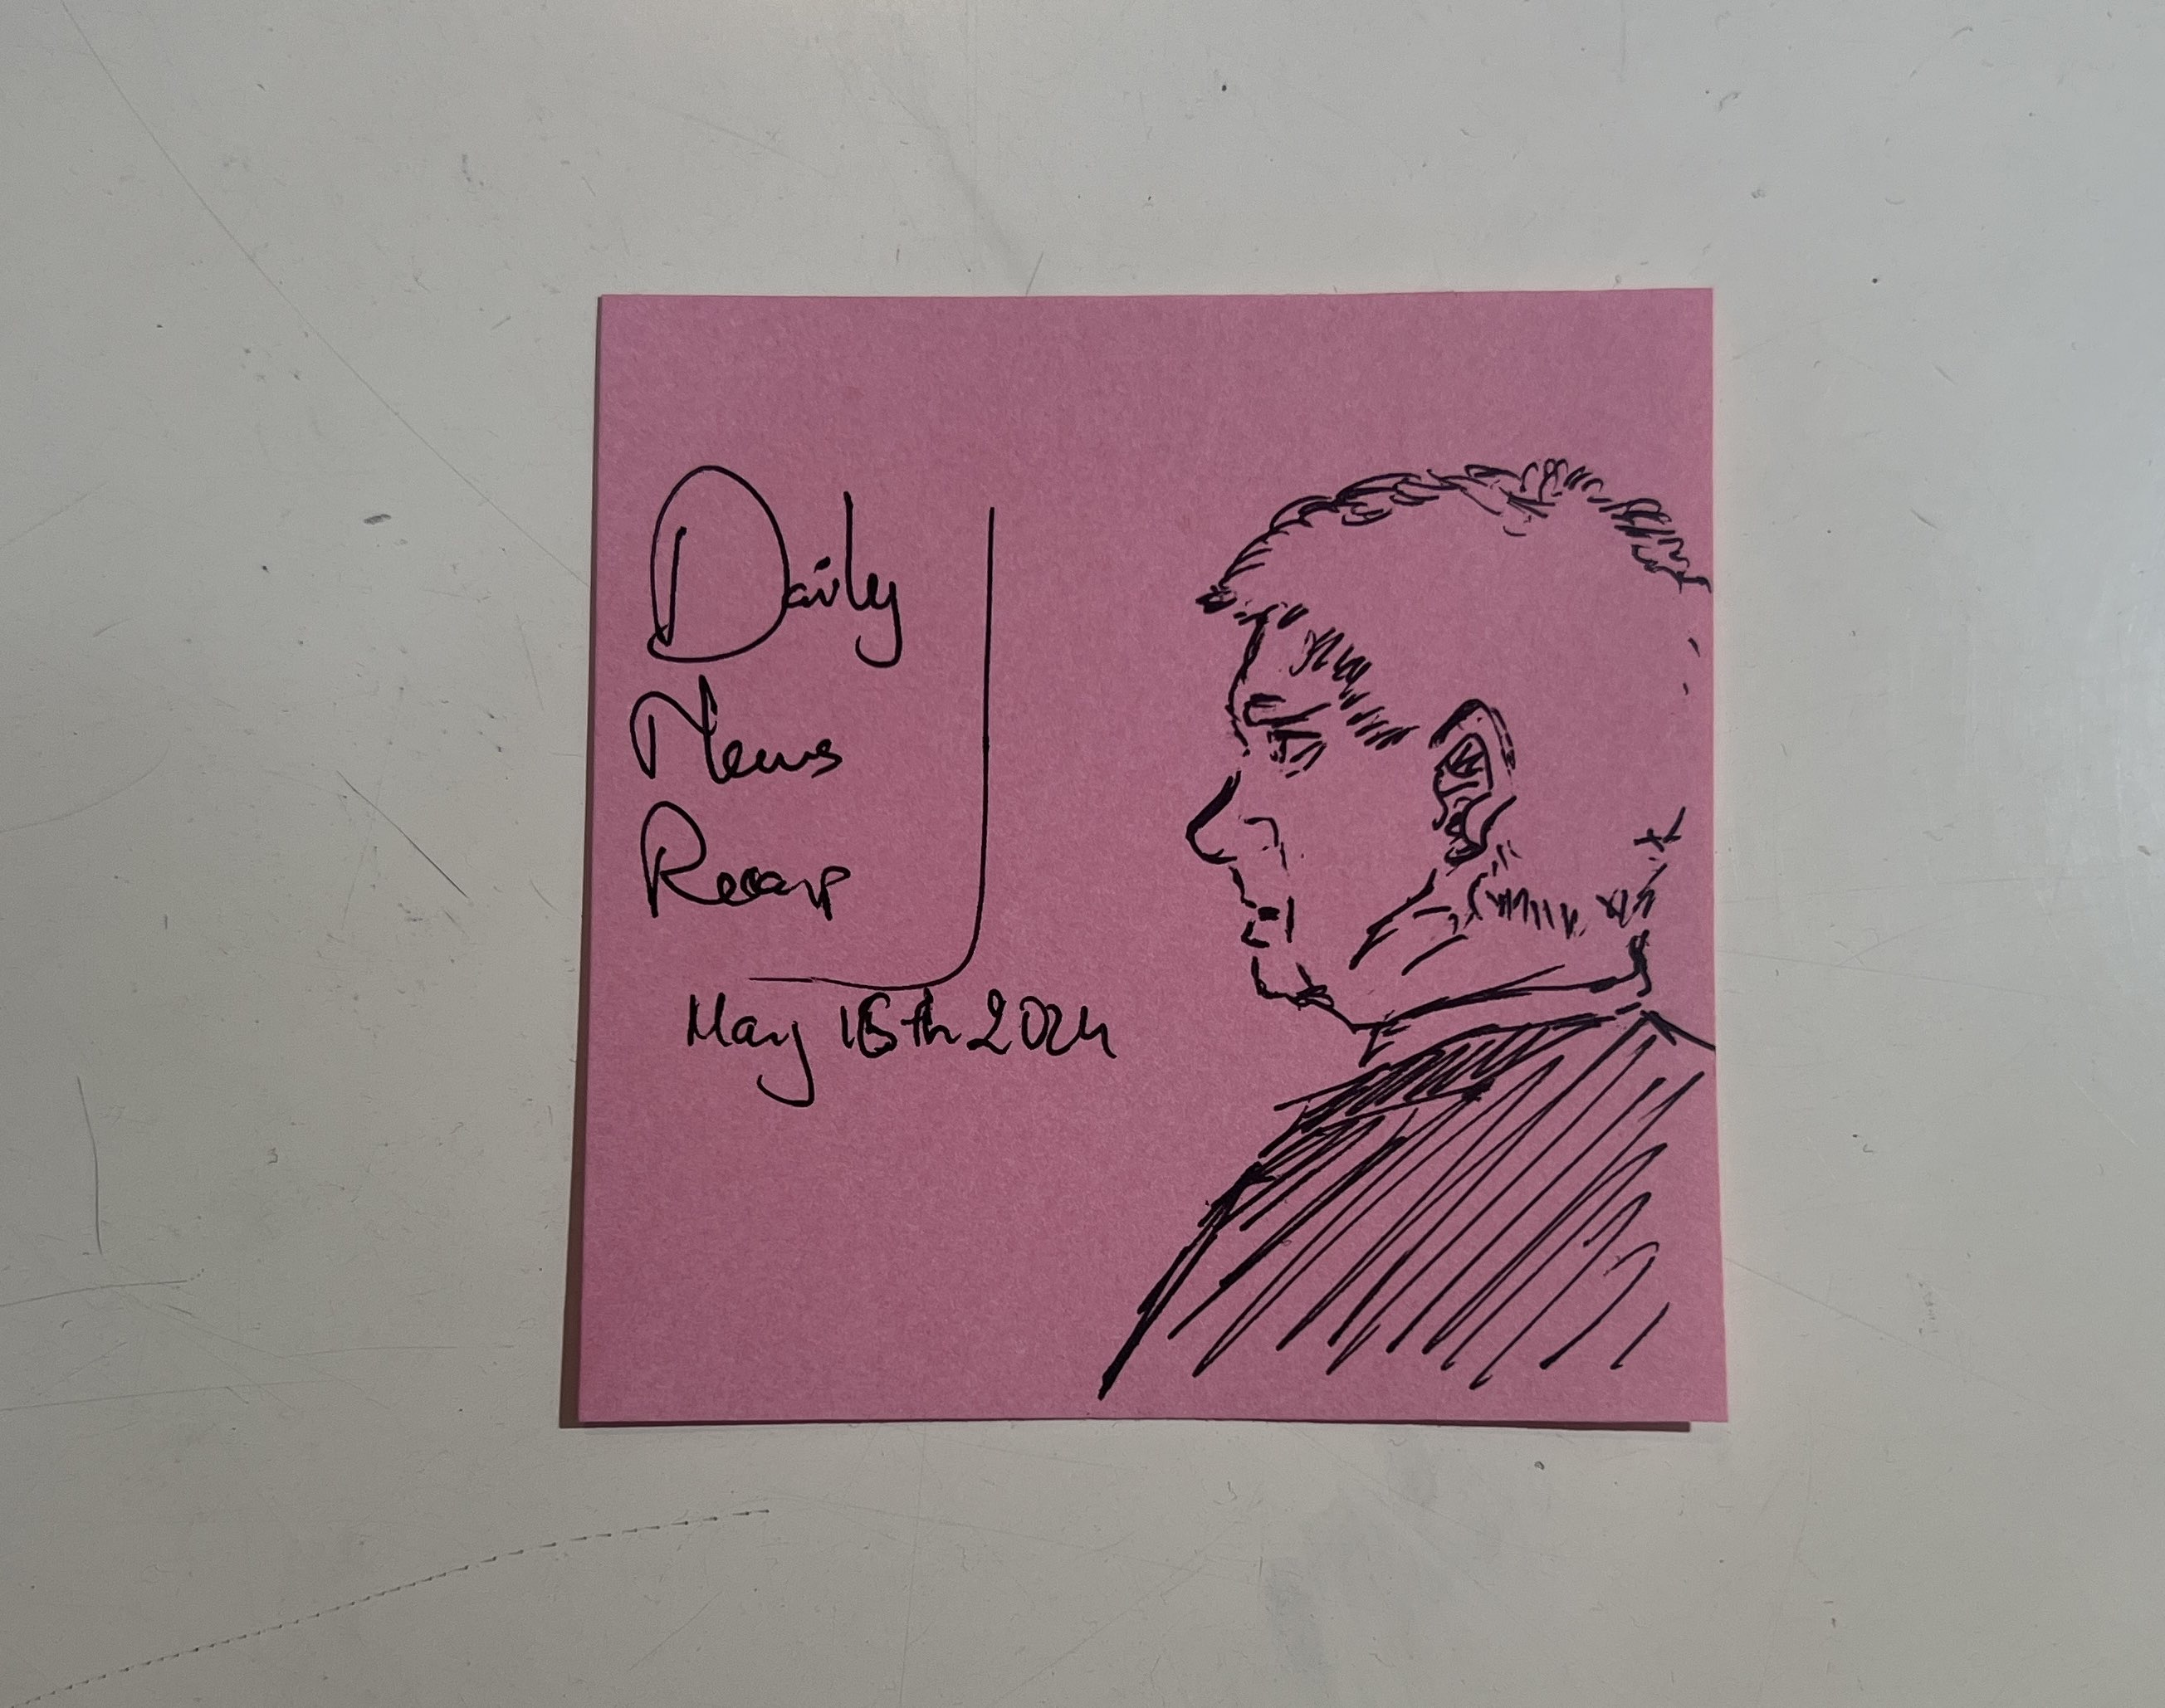 Daily
News
Recap
May 16th 2024